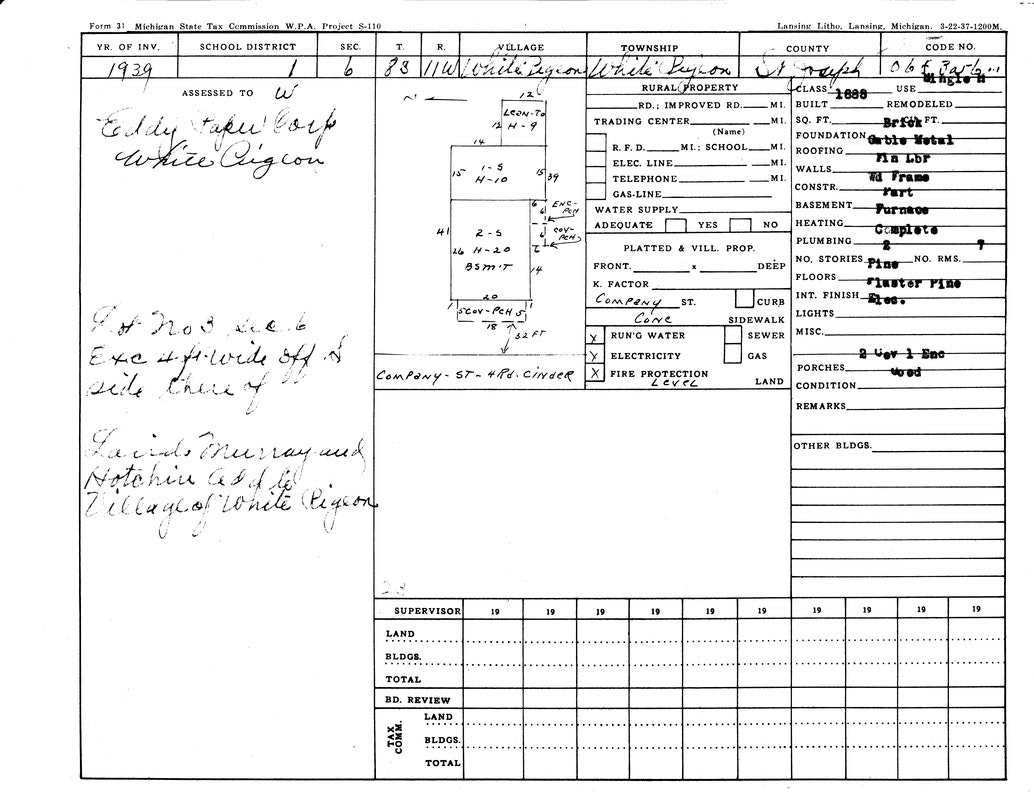 Form 31 Michigan State Tax Commission W.P.A. Project S-110
Lansing Litho, Lansing, Michigan. 3-22-37-1200M.
YR. OF INV. SCHOOL DISTRICT SEC. T. R. VILLAGE TOWNSHIP COUNTY CODE NO.
1939 1 6 8S 11W White Pigeon White Pigeon St Joseph 06
ASSESSED TO W
Eddy Paper Corp
White Pigeon
Lot No 3 Sec. 6
Exc 4 ft. wide off S
side there of
Murray and
Hotchin Add to
Village of White Pigeon
N
12
LEAN-TO
12 H-9
14
15 1-S 15 39
H-10
6 ENC-
6 PCH
41 2-S 6 COV-
PCH
26 H-20 2
BSM'T 14
20
1 5 COV-PCH 5 1
18
32 FT
COMPANY-ST-4Rd. CINDER
23
RURAL PROPERTY
RD.; IMPROVED RD. MI.
TRADING CENTER MI.
(Name)
R. F. D. MI.; SCHOOL MI.
ELEC. LINE MI.
TELEPHONE MI.
GAS-LINE
WATER SUPPLY
ADEQUATE YES NO
PLATTED & VILL. PROP.
FRONT. x DEEP
K. FACTOR
COMPANY ST. CURB
CONC SIDEWALK
X RUN'G WATER SEWER
X ELECTRICITY GAS
X FIRE PROTECTION
LEVEL LAND
CLASS USE Single H
1888
BUILT REMODELED
SQ. FT. CU. FT.
Brick
FOUNDATION
Gable Metal
ROOFING
Fin Lbr
WALLS
Wd Frame
CONSTR.
Part
BASEMENT
Furnace
HEATING
Complete
PLUMBING
2 7
NO. STORIES NO. RMS.
Pine
FLOORS
Plaster Pine
INT. FINISH
Elec.
LIGHTS
MISC.
2 Cov 1 Enc
PORCHES
Wood
CONDITION
REMARKS
OTHER BLDGS.
SUPERVISOR 19 19 19 19 19 19 19 19 19 19
LAND
BLDGS.
TOTAL
BD. REVIEW
TAX COMM.
LAND
BLDGS.
TOTAL